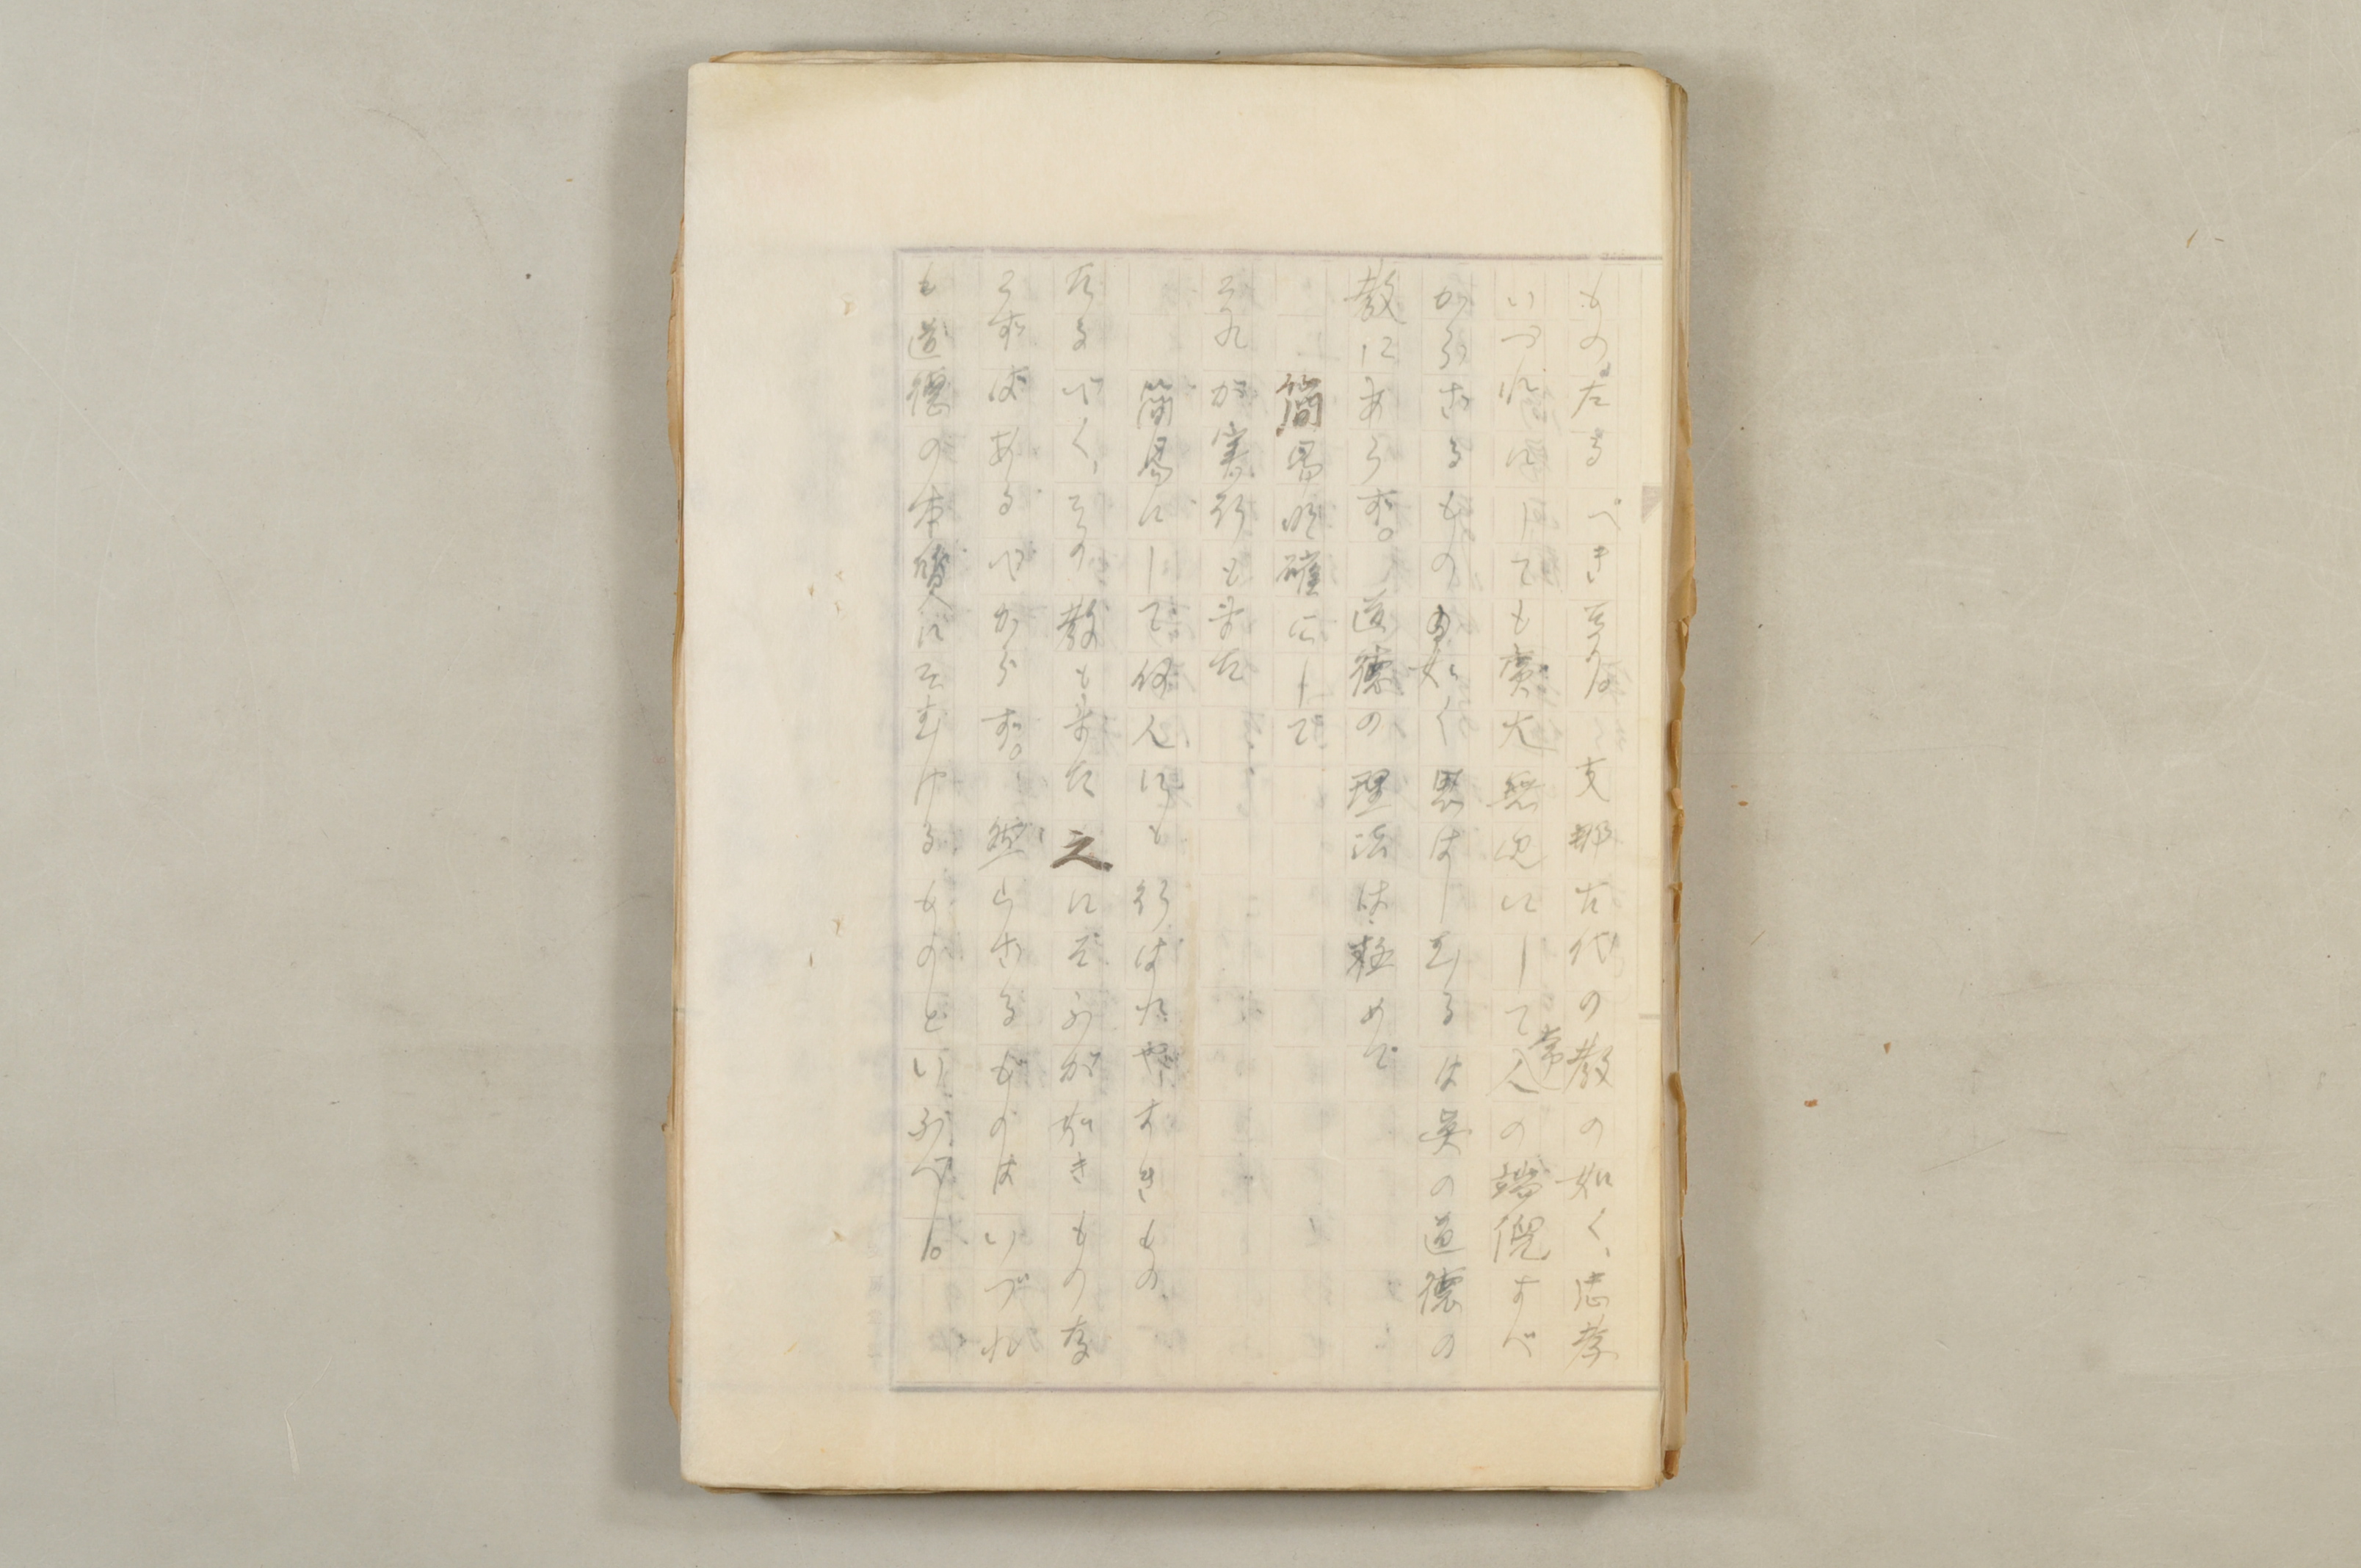 ものたるべき言 支那古代の教の如く、忠孝
いづれにしても廣大無邊にして常人の端倪すべ
からざるものの如く思はしむるは眞の道德の
教にあらず。道德の理法は極めて
簡易明確にして
それが實行もまた
簡易にして何人にも行はれやすきもの
たるべく、その教もまた之にそふが如きものな
らずばあるべからず。然らざるものはいづれ
も道德の本質にそむけるものといふべし。